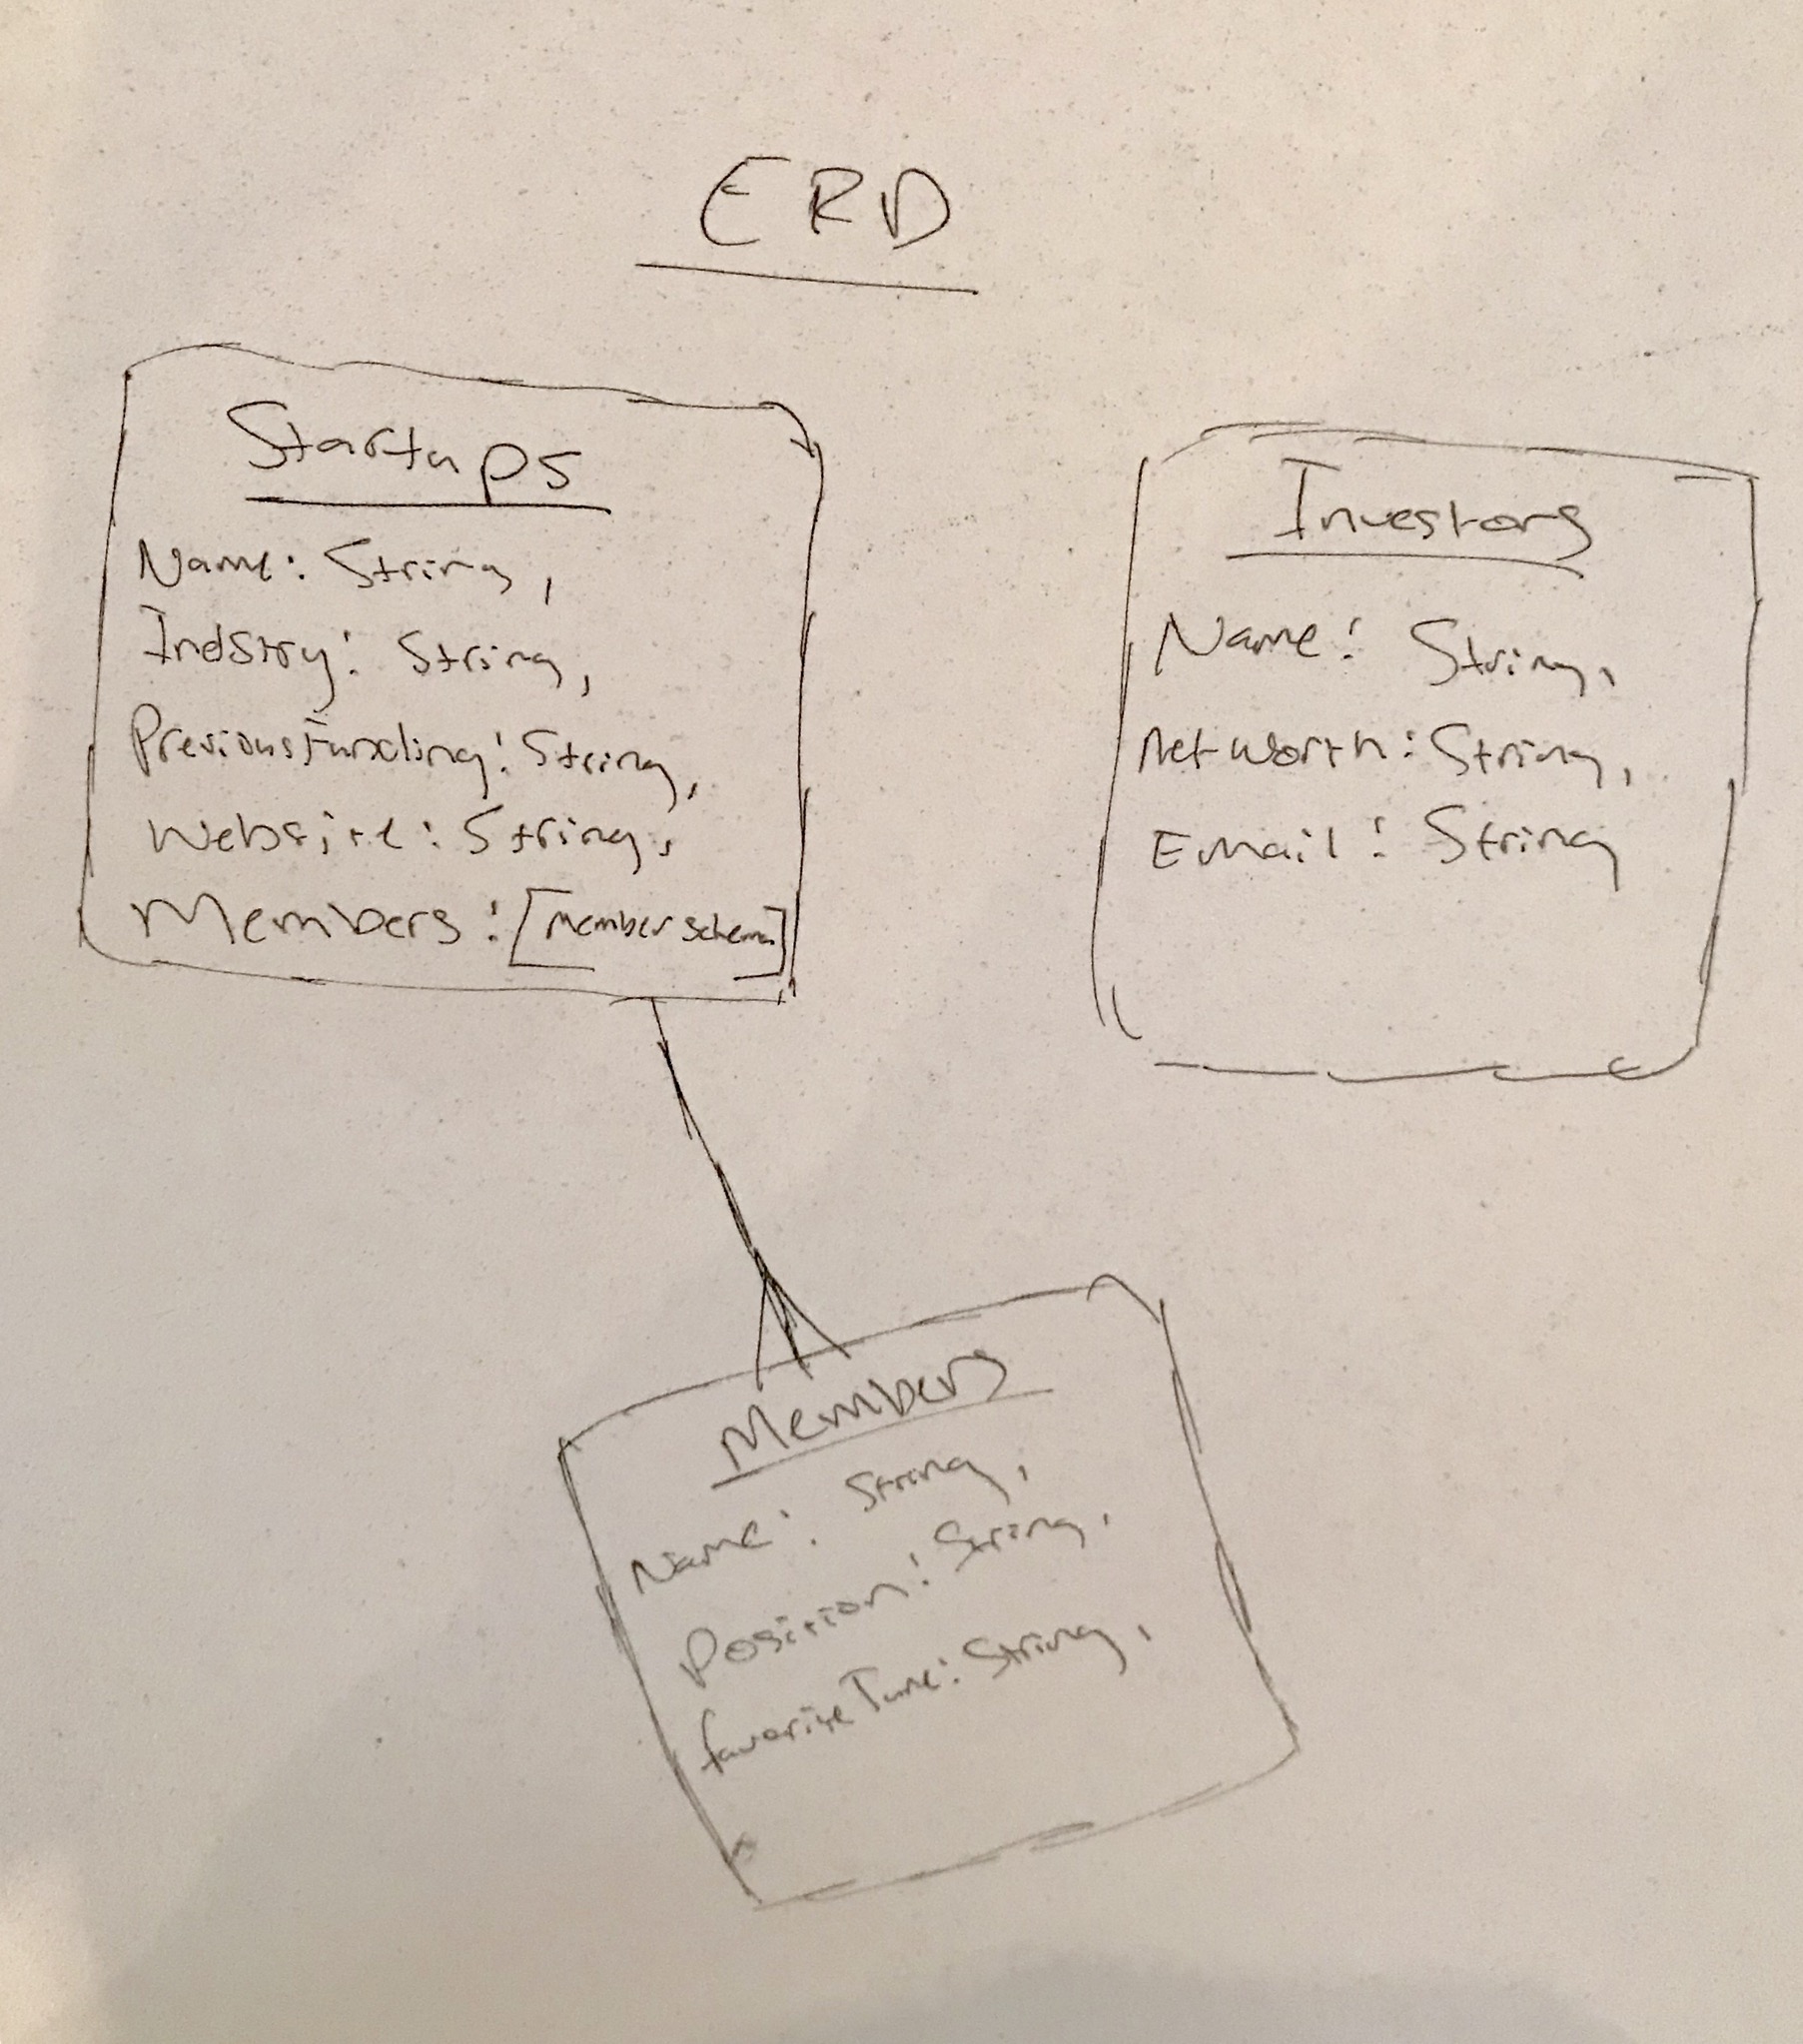 ERD
Startups
Name: String,
Indstry: String,
PreviousFunding: String,
Website: String,
Members: [Member Schema]
Investors
Name: String,
Net Worth: String,
Email: String
Members
Name: String,
Position: String,
favorite Tune: String,